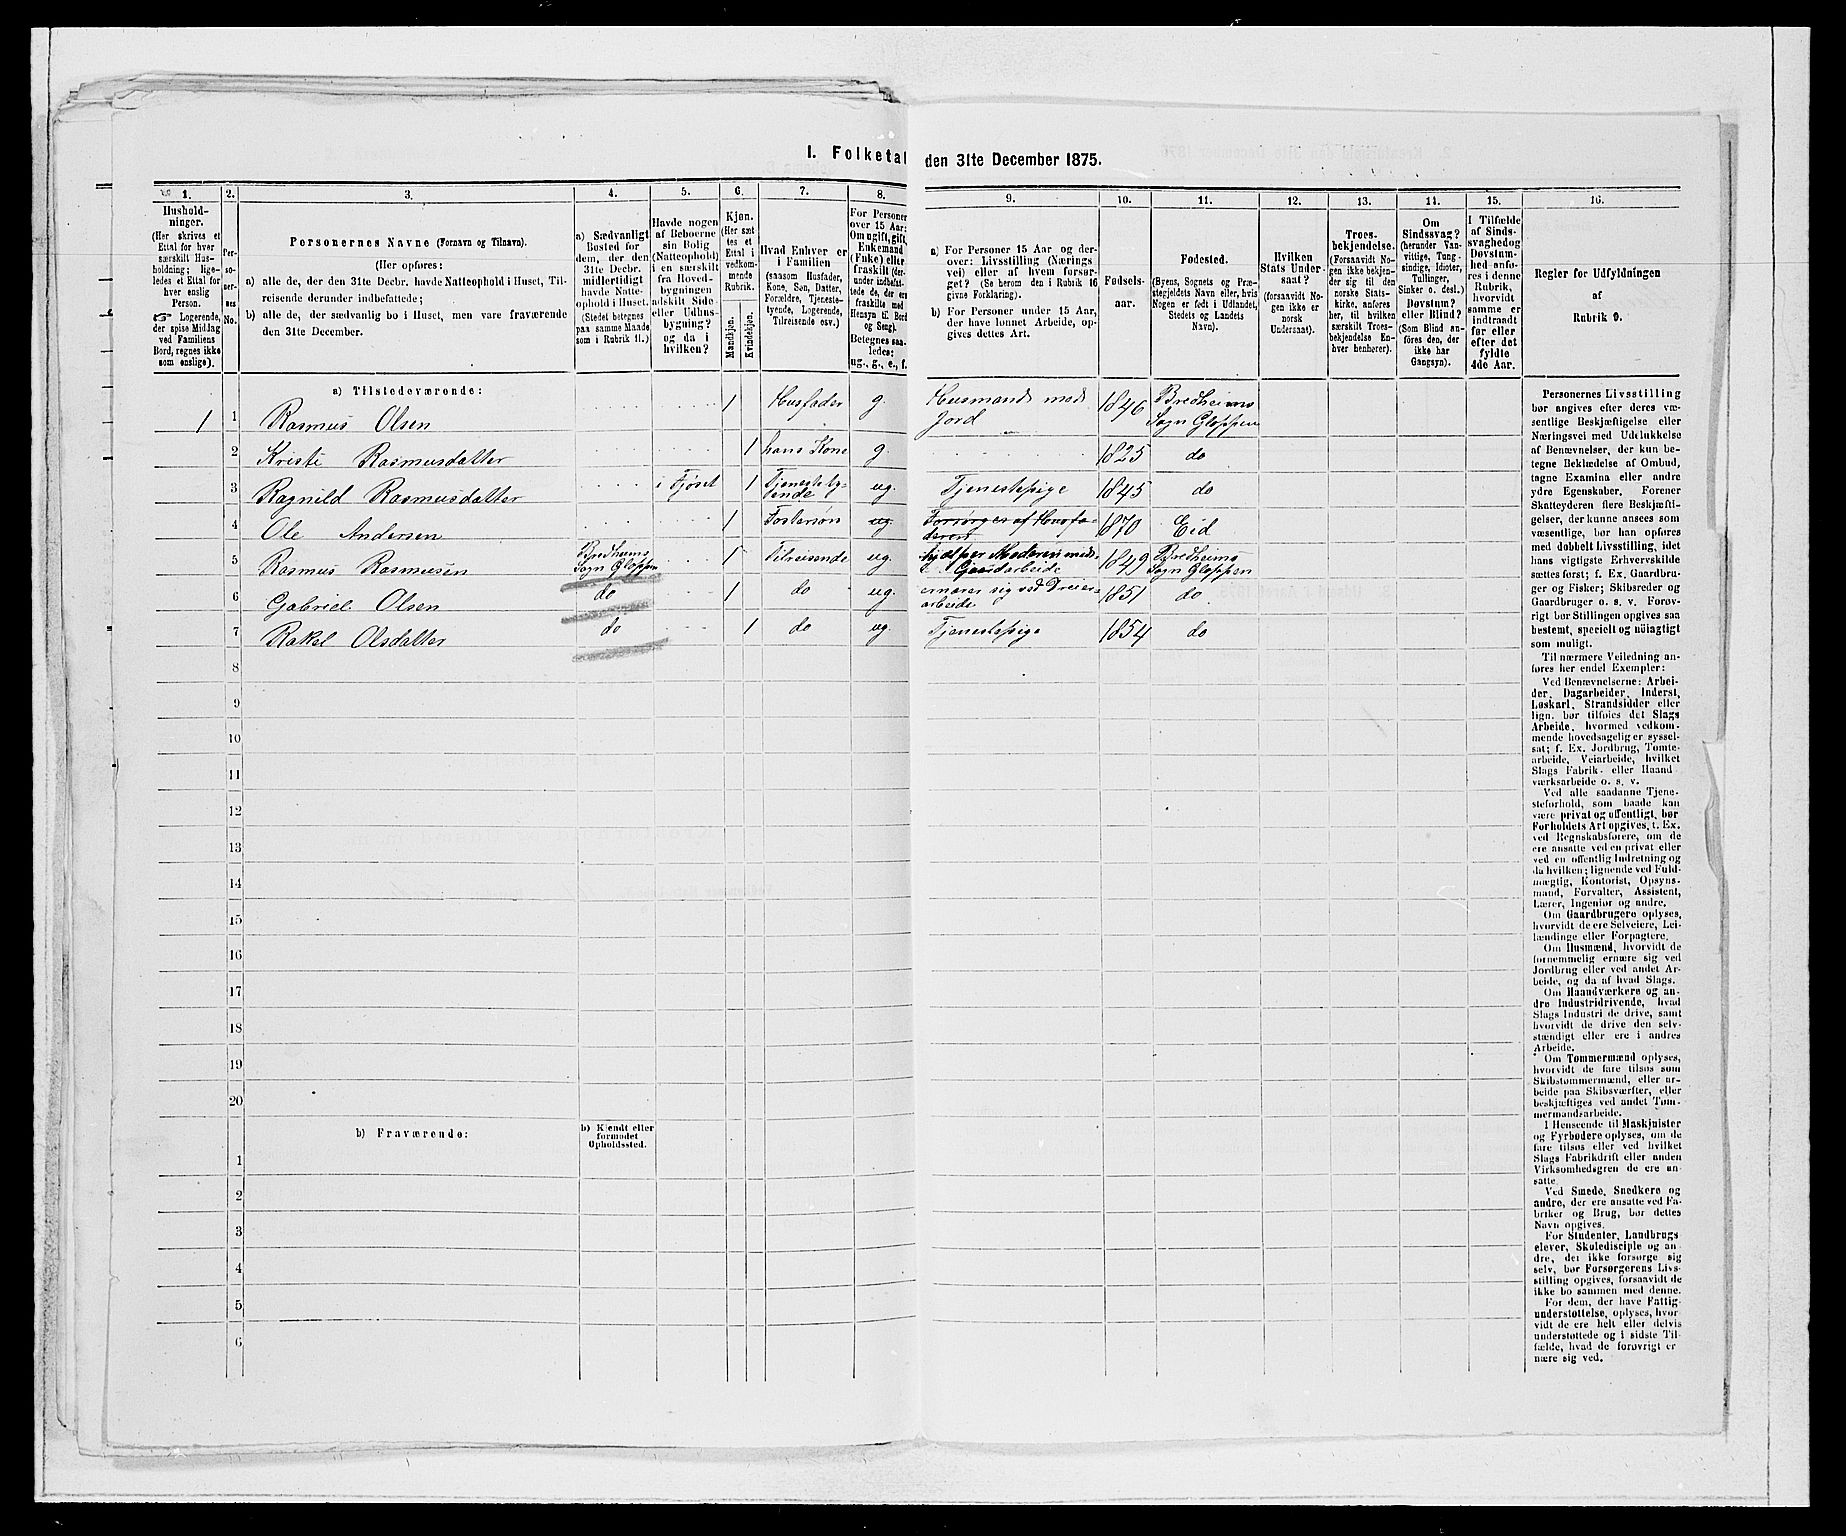 I. Folketal
den 31te December 1875.
1.
Hushold-
ninger.
(Her skrives et
Ettal for hver
særskilt Hus-
holdning; lige-
ledes et Ettal for
hver enslig
Person.
☞ Logerende,
der spise Middag
ved Familiens
Bord, regnes ikke
som enslige).
2.
Per-
so-
nernes
No.
3.
Personernes Navne (Fornavn og Tilnavn).
(Her opføres:
a) alle de, der den 31te Decbr. havde Natteophold i Huset, Til-
reisende derunder indbefattede;
b) alle de, der sædvanlig bo i Huset, men vare fraværende
den 31te December.
4.
a) Sædvanligt
Bosted for
dem, der den
31te Decbr.
midlertidigt
havde Natte-
ophold i Huset.
(Stedet betegnes
paa samme Maade
som i Rubrik 11.)
5.
Havde nogen
af Beboerne
sin Bolig
(Natteophold)
i en særskilt
fra Hoved-
bygningen
adskilt Side-
eller Udhus-
bygning?
og da i
hvilken?
6.
Kjøn.
(Her sæt-
tes et
Ettal i
vedkom-
mende
Rubrik.
Mandkjøn.
Kvindekjøn.
7.
Hvad Enhver er
i Familien
(saasom Husfader,
Kone, Søn, Datter,
Forældre, Tjeneste-
tyende, Logerende,
Tilreisende osv.)
8.
For Personer
over 15 Aar:
Om ugift, gift,
Enkemand
(Enke) eller
fraskilt (der-
under indbefat-
tede de, der ere
fraskilte med
Hensyn til Bord
og Seng).
Betegnes saa-
ledes:
ug., g., e., f.
9.
a) For Personer 15 Aar og der-
over: Livsstilling (Nærings-
vei) eller af hvem forsør-
get? (Se herom den i Rubrik 16
givne Forklaring).
b) For Personer under 15 Aar,
der have lønnet Arbeide, op-
gives dettes Art.
10.
Fødsels-
aar.
11.
Fødested.
(Byens, Sognets og Præ-
stegjeldets Navn eller, hvis
Nogen er født i Udlandet,
Stedets og Landets
Navn).
12.
Hvilken
Stats Under-
saat?
(forsaavidt No-
gen ikke er
norsk
Undersaat).
13.
Troes-
bekjendelse.
(Forsaavidt No-
gen ikke bekjen-
der sig til den
norske Stats-
kirke, anføres
her, til hvilken
særskilt Troes-
bekjendelse En-
hver henhører).
14.
Om
Sindssvag?
(herunder Van-
vittige, Tung-
sindige, Idioter,
Tullinger,
Sinker o. desl.)
Døvstum?
eller Blind?
(Som Blind an-
føres den, der
ikke har
Gangsyn).
15.
I Tilfælde
af Sinds-
svaghed og
Døvstum-
hed anfø-
res i denne
Rubrik,
hvorvidt
samme er
indtraadt
før eller
efter det
fyldte
4de Aar.
16.
Regler for Udfyldningen
af
Rubrik 9.
a) Tilstedeværende:
1 1 Rasmus Olsen 1 Husfader g. Husmand med Jord 1846 Bredheims Sogn Gloppen
2 Kriste Rasmusdatter 1 hans Kone g. 1825 do
3 Ragnild Rasmusdatter i Fjøset 1 Tjenestety-
ende ug. Tjenestepige 1845 do
4 Ole Andersen 1 Fostersøn ug. Forsørges af Husfa-
deren 1870 Eid
5 Rasmus Rasmusen Bredheims Sogn Gloppen 1 Tilreisende ug. hjelper Moderen med Gaardarbeide 1849 Bredheims Sogn Gloppen
6 Gabriel Olsen do 1 do ug. ernærer sig ved Dreier-
arbeide 1851 do
7 Rakel Olsdatter do 1 do ug. Tjenestepige 1854 do
8
9
10
11
12
13
14
15
16
17
18
19
20
b) Fraværende:
b) Kjendt eller
formodet
Opholdssted.
1
2
3
4
5
6
Personernes Livsstilling
bør angives efter deres væ-
sentlige Beskjæftigelse eller
Næringsvei med Udelukkelse
af Benævnelser, der kun be-
tegne Beklædelse af Ombud,
tagne Examina eller andre
ydre Egenskaber. Forener
Skatteyderen flere Beskjæfti-
gelser, der kunne ansees som
væsentlige, bør han opføres
med dobbelt Livsstilling, idet
hans vigtigste Erhvervskilde
sættes først; f. Ex. Gaardbru-
ger og Fisker; Skibsreder og
Gaardbruger o. s. v. Forøv-
rigt bør Stillingen opgives saa
bestemt, specielt og nøiagtigt
som muligt.
Til nærmere Veiledning an-
føres her endel Exempler:
Ved Benævnelserne: Arbei-
der, Dagarbeider, Inderst,
Løskarl, Strandsidder eller
lign. bør tilføies det Slags
Arbeide, hvormed vedkom-
mende hovedsagelig er syssel-
sat; f. Ex. Jordbrug, Tomte-
arbeide, Veiarbeide, hvilket
Slags Fabrik- eller Haand-
værksarbeide o. s. v.
Ved alle saadanne Tjene-
steforhold, som baade kan
være privat og offentligt, bør
Forholdets Art opgives, t. Ex.
ved Regnskabsførere, om de
ere ansatte ved en privat eller
ved en offentlig Indretning og
da hvilken; lignende ved Fuld-
mægtig, Kontorist, Opsyns-
mand, Forvalter, Assistent,
Lærer, Ingeniør og andre.
Om Gaardbrugere oplyses,
hvorvidt de ere Selveiere, Lei-
lændinge eller Forpagtere.
Om Husmænd, hvorvidt de
fornemmelig ernære sig ved
Jordbrug eller ved andet Ar-
beide, og da af hvad Slags.
Om Haandværkere og an-
dre Industridrivende, hvad
Slags Industri de drive, samt
hvorvidt de drive den selv-
stændigt eller ere i andres
Arbeide.
Om Tømmermænd oplyses,
hvorvidt de fare tilsøs som
Skibstømmermænd, eller ar-
beide paa Skibsværfter, eller
beskjæftiges ved andet Tøm-
mermandsarbeide.
I Henseende til Maskinister
og Fyrbødere oplyses, om de
fare tilsøs eller ved hvilket
Slags Fabrikdrift eller anden
Virksomhedsgren de ere an-
satte.
Ved Smede, Snedkere og
andre, der ere ansatte ved Fa-
briker og Brug, bør dettes
Navn opgives.
For Studenter, Landbrugs-
elever, Skoledisciple og an-
dre, der ikke forsørge sig
selv, bør Forsørgerens Livs-
stilling opgives, forsaavidt de
ikke bo sammen med denne.
For dem, der have Fattig-
understøttelse, oplyses, hvor-
vidt de ere helt eller delvis
understøttede og i sidste Til-
fælde, hvad de forøvrigt er-
nære sig ved.